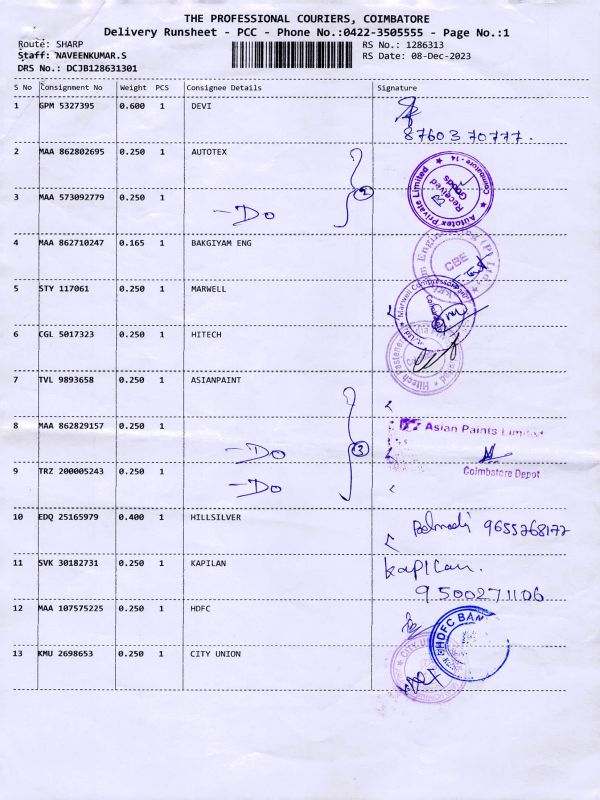 THE PROFESSIONAL COURIERS, COIMBATORE
Delivery Runsheet - PCC - Phone No.:0422-3505555 - Page No.:1
Route: SHARP
RS No.: 1286313
Staff: NAVEENKUMAR.S
RS Date: 08-Dec-2023
DRS No.: DCJB128631301
S No Consignment No Weight PCS Consignee Details Signature
1 GPM 5327395 0.600 1 DEVI
8760370777.
2 MAA 862802695 0.250 1 AUTOTEX
Autotex Private Limited ★ Coimbatore - 14 ★
Received Goods
3 MAA 573092779 0.250 1
-Do 2
4 MAA 862710247 0.165 1 BAKGIYAM ENG
CBE
5 STY 117061 0.250 1 MARWELL
6 CGL 5017323 0.250 1 HITECH
Hitech Fastener
7 TVL 9893658 0.250 1 ASIANPAINT
8 MAA 862829157 0.250 1
-Do 3
Asian Paints Limited
Coimbatore Depot
9 TRZ 200005243 0.250 1
-Do
10 EDQ 25165979 0.400 1 HILLSILVER
9655268172
11 SVK 30182731 0.250 1 KAPILAN
kapilan.
9500271106
12 MAA 107575225 0.250 1 HDFC
HDFC BAN
13 KMU 2698653 0.250 1 CITY UNION
CITY U